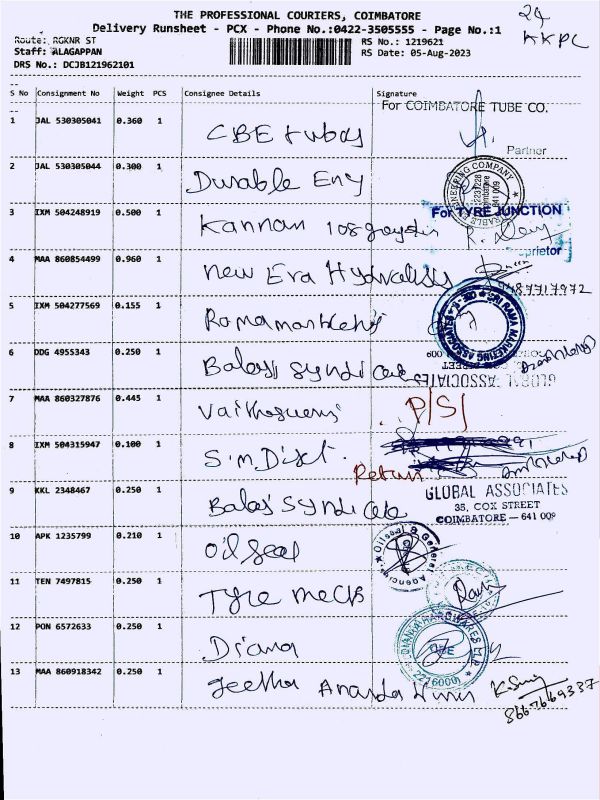 THE PROFESSIONAL COURIERS, COIMBATORE
Delivery Runsheet - PCX - Phone No.:0422-3505555 - Page No.:1
24
KKPC
Route: RGKNR ST
Staff: ALAGAPPAN
DRS No.: DCJB121962101
RS No.: 1219621
RS Date: 05-Aug-2023
S No Consignment No Weight PCS Consignee Details Signature
For COIMBATORE TUBE CO.
1 JAL 530305041 0.360 1 CBE
Partner
2 JAL 530305044 0.300 1 Durable Eng
ENGINEERING COMPANY
641 009
3 IXM 504248919 0.500 1 Kannan
For TYRE JUNCTION
4 MAA 860854499 0.960 1 New Era
9487717972
5 IXM 504277569 0.155 1
SRI RAMA MARKETING ASSOCIATES
6 DDG 4955343 0.250 1 Balaji Syndicate
GLOBAL ASSOCIATES
7 MAA 860327876 0.445 1
P/S/
8 IXM 504315947 0.100 1 S.M. Dist.
Return
9 KKL 2348467 0.250 1 Balaji Syndicate
GLOBAL ASSOCIATES
35, COX STREET
COIMBATORE — 641 009
10 APK 1235799 0.210 1 Oil seal
Oilseal & General Agencies
11 TEN 7497815 0.250 1 Tyre
12 PON 6572633 0.250 1 Diana
HARDWARES
13 MAA 860918342 0.250 1 Geetha Ananda
8667669337